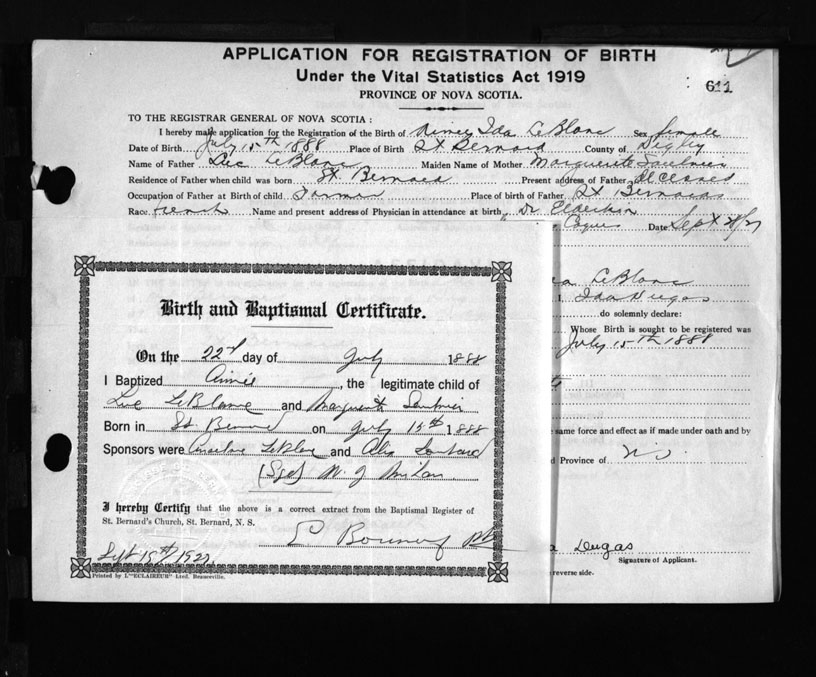 APPLICATION FOR REGISTRATION OF BIRTH
Under the Vital Statistics Act 1919
PROVINCE OF NOVA SCOTIA.
611
TO THE REGISTRAR GENERAL OF NOVA SCOTIA:
I hereby make application for the Registration of the Birth of Aimey Ida LeBlanc Sex female
Date of Birth July 15th 1888 Place of Birth St Bernard County of Digby
Name of Father Luc LeBlanc Maiden Name of Mother Marguerite Saulnier
Residence of Father when child was born St. Bernard Present address of Father deceased
Occupation of Father at Birth of child Farmer Place of birth of Father St Bernard
Race french Name and present address of Physician in attendance at birth Dr Elderkin
Date Sept
LeBlanc
Ida Dugas
do solemnly declare:
Whose Birth is sought to be registered was
July 15th 1888
same force and effect as if made under oath and by
d Province of N.S.
a Dugas
Signature of Applicant.
reverse side.
Birth and Baptismal Certificate.
On the 22nd day of July 1888
I Baptized Aimée, the legitimate child of
Luc LeBlanc and Marguerite Saulnier
Born in St. Bernard on July 15th 1888
Sponsors were LeBlanc and
(Sgd) M. J.
I hereby Certify that the above is a correct extract from the Baptismal Register of
St. Bernard's Church, St. Bernard, N. S.
Sept 15th 192
Printed by L'"ECLAIREUR" Ltd. Beauceville.